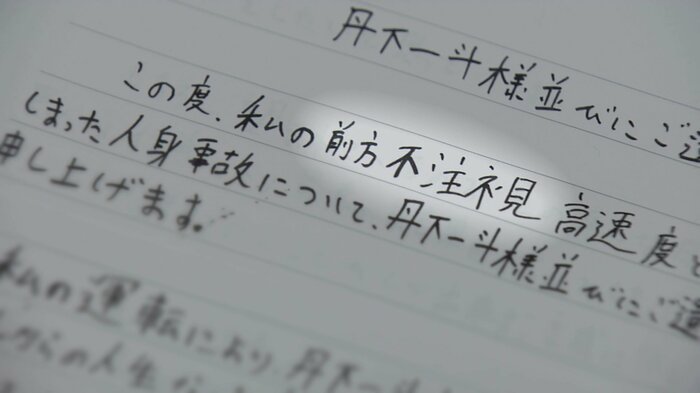 丹下一斗様並びにご遺
この度、私の前方不注視高速度と
しまった人身事故について、丹下一斗様並びにご遺
申し上げます。
私の運転により、丹下一斗
らの人生